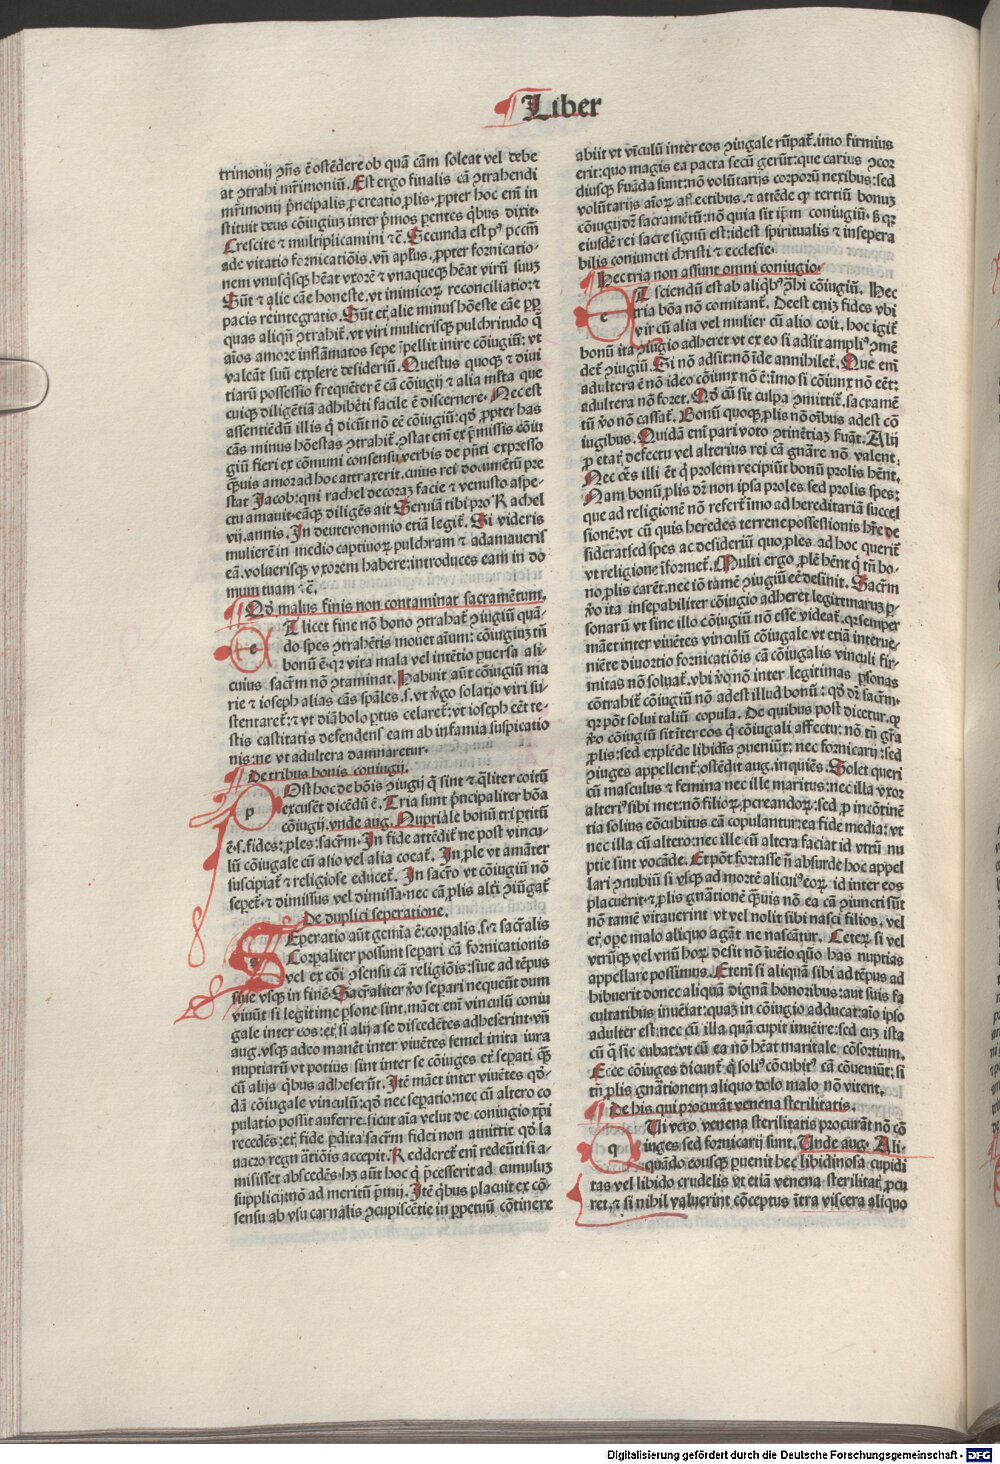 Liber
trimonij ꝯñs ē ostēdere ob quā cām soleat vel debe
at ꝯtrahi mr̄imoniū. Est ergo finalis cā ꝯtrahendi
mr̄imonij p̄ncipalis ꝓcreatio ꝓlis. ꝓpter hoc em̄ in
stituit deus cōiugiuꝫ inter p̄mos ꝑentes qͥbus dixit.
Crescite ⁊ multiplicamini ⁊c̄. Secunda est pꝰ pcc̄m
ade vitatio fornicatiōis. vn̄ apl̓us. ꝓpter fornicatio-
nem vnusqͥsqꝫ hēat vxorē ⁊ vnaqueqꝫ hēat virū suuꝫ
Sūt ⁊ alie cāe honeste. vt inimicoꝝ reconciliatio: ⁊
pacis reintegratio. Sūt et̄ alie minus hōeste cāe ꝓpꝫ
quas aliqn̄ ꝯtrahit̄. vt viri mulierisqꝫ pulchritudo q̄
aīos amore inflāmatos sepe īpellit inire cōiugiū: vt
valeāt suū explere desideriū. Questus quoqꝫ ⁊ diui
tiarū possessio frequēter ē cā cōiugij ⁊ alia ml̓ta que
cuiqꝫ diligētiā adhibēti facile ē discernere. Nec est
assentiēdū illis q̄ dicūt nō eē cōiugiū: qd̓ ꝓpter has
cās minus hōestas ꝯtrahit̄. ꝯstat em̄ ex p̄missis cōiu
giū fieri ex cōmuni consensu verbis de p̄nti expresso
qͣuis amor ad hoc attraxerit. cuius rei documētū pre
stat Jacob: qui rachel decoraꝫ facie ⁊ venusto aspe-
ctu amauit. eāqꝫ diligēs ait Seruiā tibi pro Rachel
vij. annis. In deuteronomio etiā legit̄. Si videris
mulierē in medio captiuoꝝ pulchram ⁊ adamaueris
eā. volueriſqꝫ vxorem habere: introduces eam in do
mum tuam ⁊c̄.
Qd̓ malus finis non contaminat sacramētum.
Et licet fine nō bono ꝯtrahat̄ ꝯiugiū quā-
do spēs ꝯtrahētis mouet aīum: cōiugiuꝫ tn̄
bonū ē. qꝛ vita mala vel intētio ꝑuersa ali-
cuius sacr̄m nō ꝯtaminat. Habuit aūt cōiugiū ma
rie ⁊ ioseph alias cās spāles. s. vt v̓go solatio viri su-
stentaret̄: ⁊ vt diabolo ꝑtus celaret̄: vt ioseph eēt te-
stis castitatis defendens eam ab infamia suspicatio
nis: ne vt adultera damnaretur.
De tribus bonis coniugij.
Post hoc de bōis ꝯiugij q̄ sint ⁊ qͣliter coitū
excusēt dicēdū ē. Tria sunt p̄ncipaliter bōa
cōiugij. vnde aug. Nuptiale bonū tripartitū
ē. s. fides: ꝓles: sacr̄m. In fide attēdit̄ ne post vincu-
lū cōiugale cū alio vel alia coeat̄. In ꝓle vt amāter
suscipiat̄ ⁊ religiose educet̄. In sacr̄o vt cōiugiū nō
seꝑet̄. ⁊ dimissus vel dimissa. nec cā ꝓlis alt̓i ꝯiūgat̄
De duplici seperatione.
Seperatio aūt gemīa ē: corꝑalis. s. ⁊ sacr̄alis
Corꝑaliter possunt separi cā fornicationis
vel ex cōi ꝯsensu cā religiōis: siue ad tēpus
siue vsqꝫ in finē. Sacr̄aliter v̓o seꝑari nequeūt dum
viuūt si legitime ꝑsone sint. māet em̄ vinculū coniu
gale inter eos: et̄ si alij a se discedētes adheserint. vn̄
aug. vsqꝫ adeo manēt inter viuētes semel inita iura
nuptiarū vt potius sint inter se cōiuges et̄ seꝑati qͣꝫ
cū alijs qͥbus adheserūt. Itē māet inter viuētes qd̓-
dā cōiugale vinculū: qd̓ nec seꝑatio: nec cū altero co
pulatio possit auferre. sicut aīa velut de coniugio xp̄i
recedēs: et̄ fide ꝑdita sacr̄m fidei non amittit qd̓ la
uacro regnātiōis accepit. Redderet̄ em̄ redeūti si a-
misisset abscedēs. hꝫ aūt hoc q̄ p̄cesserit ad cumuluꝫ
supplicij: nō ad meritū p̄mij. Itē qͥbus placuit ex cō-
sensu ab vsu carnalis ꝯcupiscētie in ꝑpetuū cōtinere
abiit vt vīculū inter eos ꝯiugale rūpat̄. imo firmius
erit: quo magis ea pacta secū gerūt: que carius ꝯcor
diusqꝫ fuāda sunt: nō volūtarijs corporū nexibus: sed
volūtarijs aīoꝝ affectibus. ⁊ attēde ꝙ tertiū bonuꝫ
cōiugij dr̄ sacramētū: nō quia sit ip̄m coniugiū. ß qꝛ
eiusdē rei sacre signū est: idest spiritualis ⁊ insepera
bilis coniuncti christi ⁊ ecclesie.
Hec tria non assunt omni coniugio.
Et sciendū est ab aliqͥbꝰ ꝓhi cōiugiū. Hec
tria bōa nō comitant̄. Deest eniꝫ fides vbi
vir cū alia vel mulier cū alio coit. hoc igit̄
bonū ita ꝯiugio adheret vt ex eo si adsit ampliꝰ ꝯmē
det̄ ꝯiugiū. Si nō adsit: nō īde annihilet̄. Que em̄
adultera ē nō ideo cōiunx nō ē: īmo si cōiunx nō eēt:
adultera nō foret. Qd̓ cū sit culpa ꝯmittit̄. sacramē
tū v̓o nō cassat̄. Bonū quoqꝫ ꝓlis nō oībus adest cō
iugibus. Quidā em̄ pari voto ꝯtinētiaꝫ fuāt. Alij
ꝓ etat̄ defectu vel alterius rei cā gnāre nō valent.
Nec oēs illi et̄ q̄ prolem recipiūt bonū prolis hn̄t.
Nam bonū ꝓlis dr̄ non ipsa proles sed prolis spes:
que ad religionē nō refert̄. imo ad hereditariā succes
sionē: vt cū quis heredes terrene possessionis hr̄e de
siderat: sed spes ac desideriū quo ꝓles ad hoc querit̄
vt religione īformet̄. Multi ergo ꝓlē hēnt q̄ tn̄ bo-
no ꝓlis carēt. nec iō tamē ꝯiugiū eē desinit. Sacr̄m
v̓o ita insepabiliter cōiugio adheret legittimaruꝫ ꝑ-
sonarū vt sine illo cōiugiū nō esse videat̄. qꝛ semper
māet inter viuētes vinculū cōiugale. vt etiā interue-
niēte diuortio fornicatiōis cā cōiugalis vinculi fir-
mitas nō soluat̄. vbi v̓o nō inter legitimas ꝑsonas
cōtrahit̄ cōiugiū nō adest illud bonū: qd̓ dr̄ sacr̄m.
qꝛ pōt solui taliū copula. De quibus post dicetur. ꝙ
v̓o cōiugiū sit īter eos q̄ cōiugali affectu: nō tn̄ gr̄a
ꝓlis: sed explēde libidīs ꝯueniūt: nec fornicarij: sed
ꝯiuges appellent̄: ostēdit aug. inquiēs. Solet queri
cū masculus ⁊ femina nec ille maritus: nec illa vxor
alteriꝰ sibi met: nō filioꝝ ꝓcreandoꝝ: sed ꝓ incōtinē
tia solius cōcubitus cā copulantur: ea fide media: vt
nec illa cū altero: nec ille cū altera faciat id vtrū nu
ptie sint vocāde. Et pōt fortasse n̄ absurde hoc appel
lari ꝯnubiū si vsqꝫ ad mortē alicuiꝰ eoꝝ id inter eos
placuerit. ⁊ ꝓlis gnātionē qͣuis nō ea cā ꝯiuncti sūt
nō tamē vitauerint vt vel nolit sibi nasci filios. vel
et̄ ope malo aliquo agāt ne nascātur. Ceteꝝ si vel
vtrūqꝫ vel vnū hoꝝ desit nō īuēio quō has nuptias
appellare possimus. Eteni si aliquā sibi ad tēpus ad
hibuerit donec aliquā dignā honoribus: aut suis fa
cultatibus inueniat: quaꝫ in cōiugio adducat: aīo ipso
adulter est: nec cū illa quā cupit inueīre: sed cuꝫ ista
cū q̄ sic cubat: vt cū ea nō hēat maritale cōsortium.
Ecce cōiuges dicunt̄ q̄ soliꝰ cōcubitꝰ cā cōueniūt: si
tn̄ ꝓlis gnātionem aliquo dolo malo nō vitent.
De his qui procurāt venena sterilitatis.
Qui vero venena sterilitatis procurāt nō cō
iuges sed fornicarij sunt. Unde aug. Ali-
quādo eousqꝫ ꝑuenit hec libidinosa cupidi
tas vel libido crudelis vt etiā venena sterilitat̄ ꝓcu
ret. ⁊ si nihil valuerint cōceptus ītra viscera aliquo
Digitalisierung gefördert durch die Deutsche Forschungsgemeinschaft - DFG